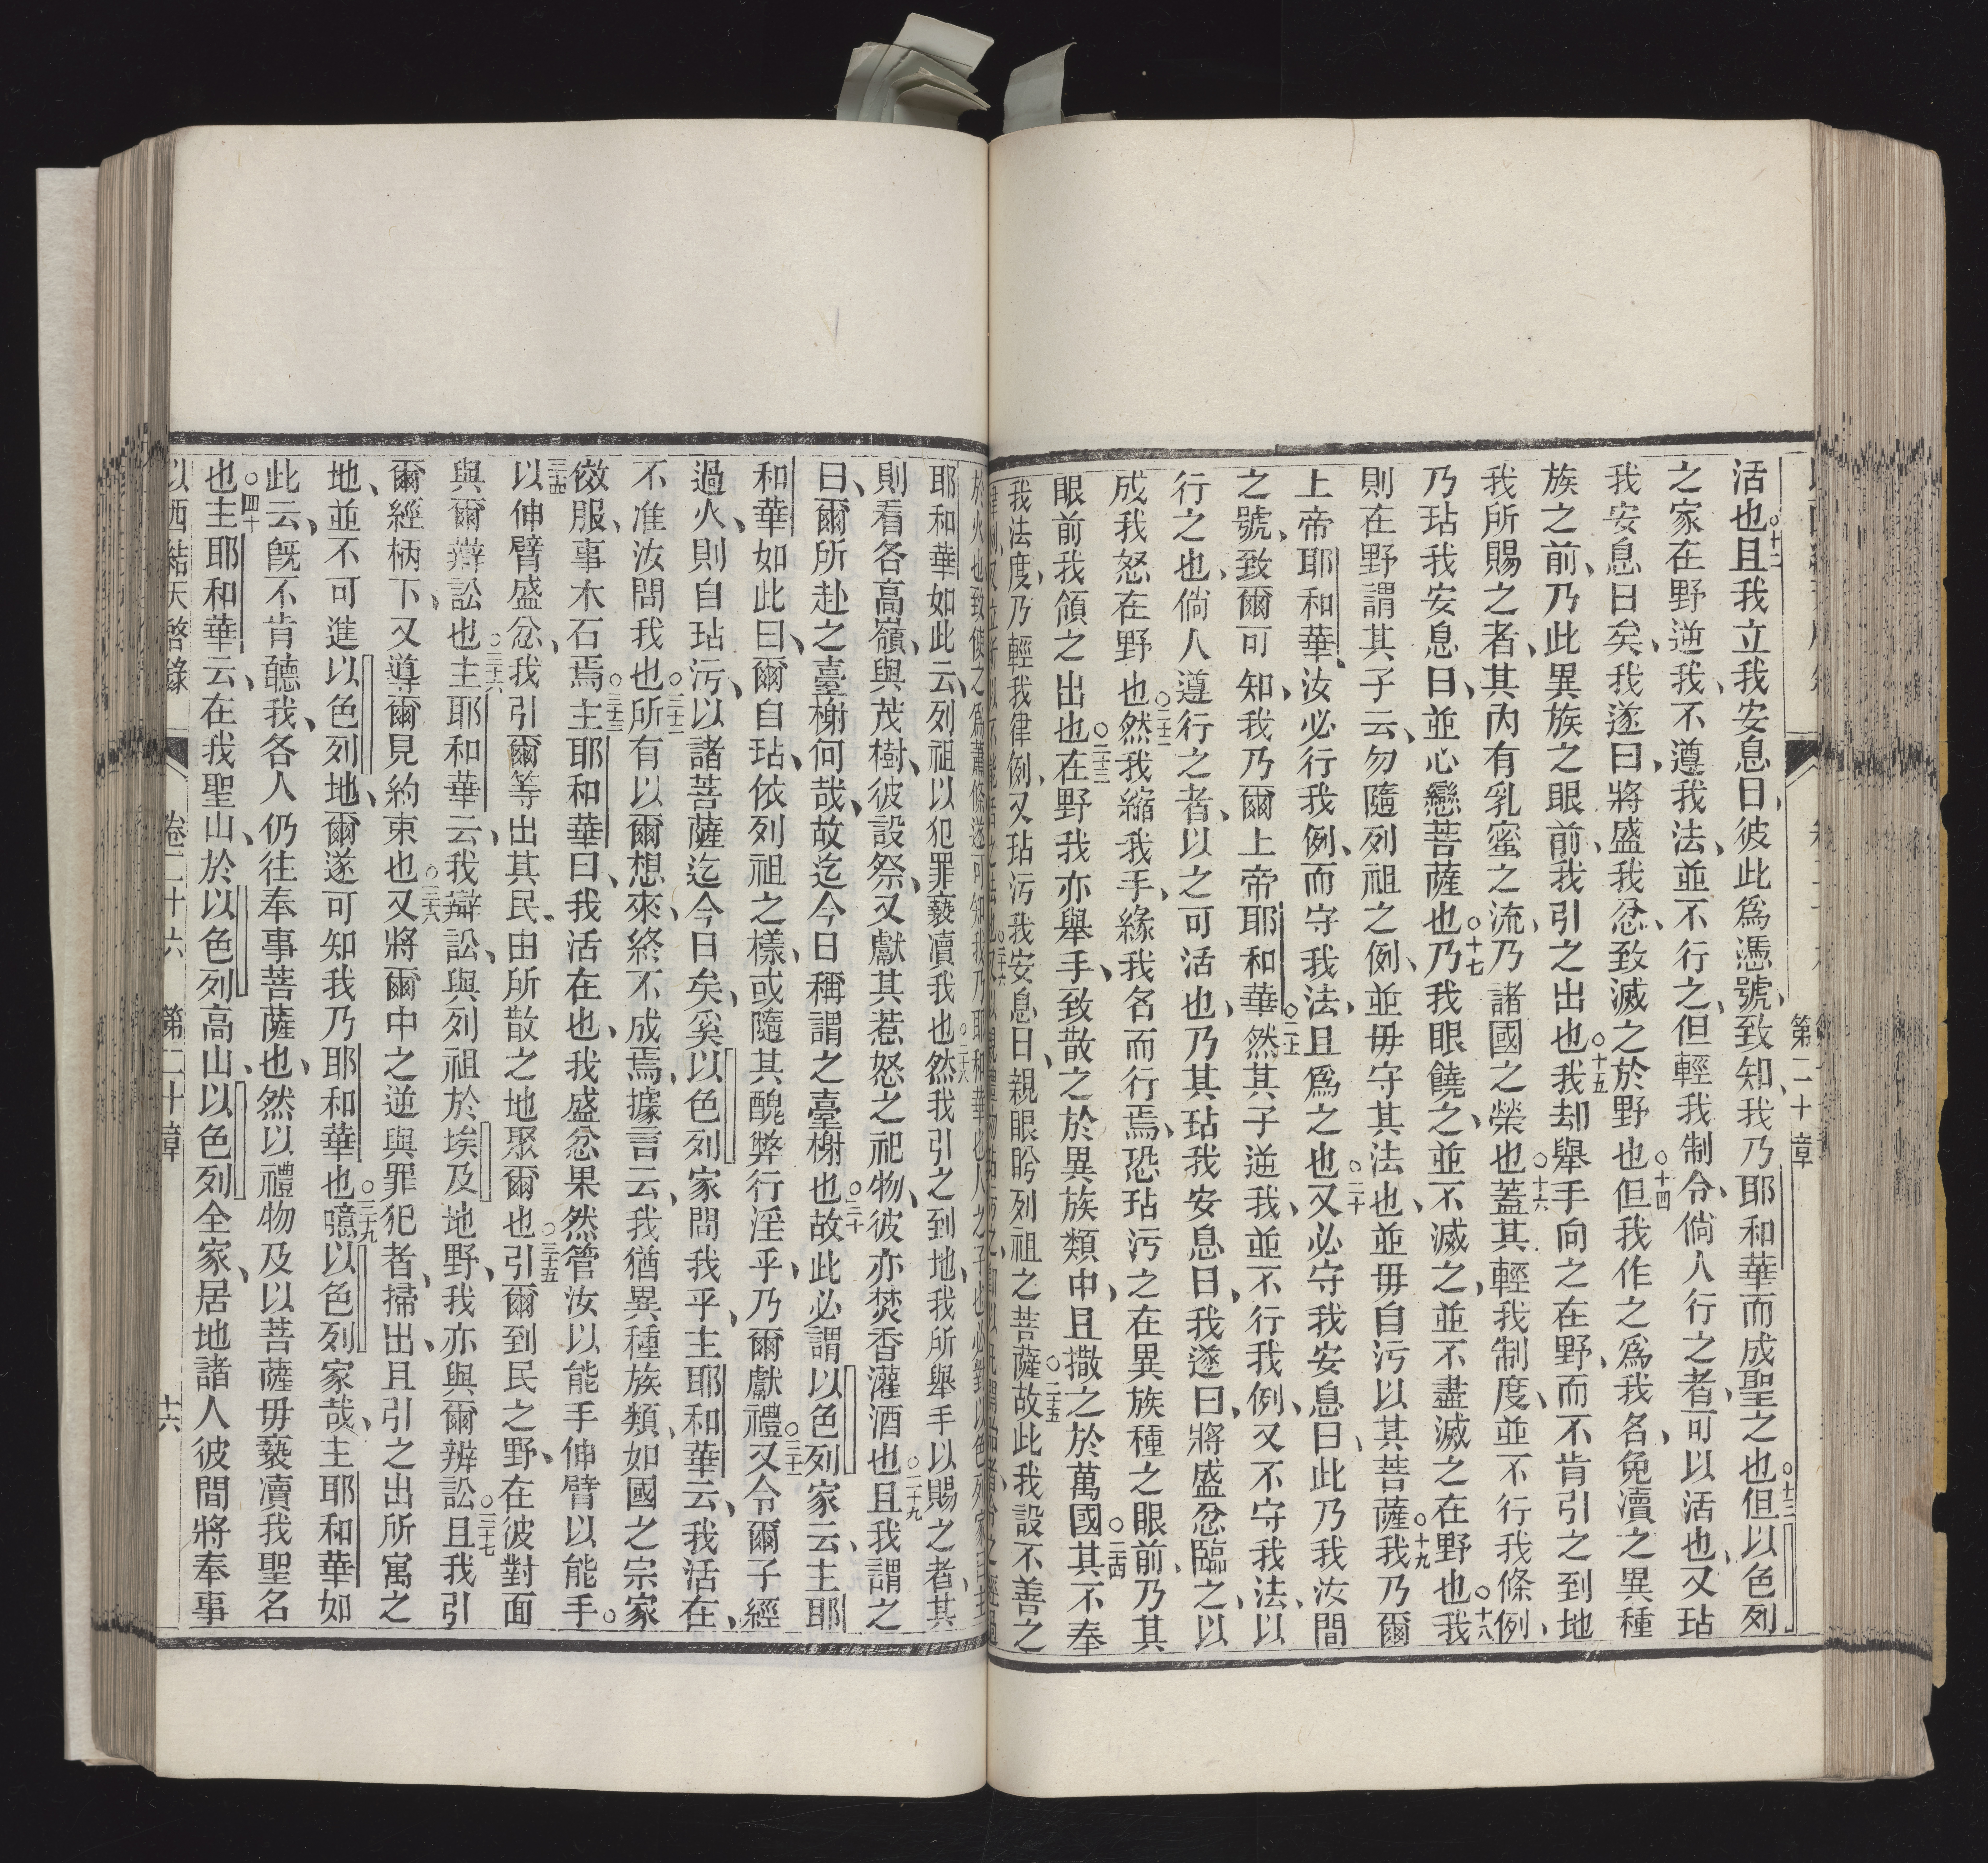 第二十章
活也○十二且我立我安息日、彼此爲憑號、致知、我乃耶和華而成聖之也○十三但以色列
之家在野逆我、不遵我法、並不行之、但輕我制令、倘人行之者、可以活也、又玷
我安息日矣、我遂曰、將盛我忿、致滅之於野也○十四但我作之爲我名、免瀆之異種
族之前、乃此異族之眼前、我引之出也○十五我却舉手向之在野、而不肯引之到地
我所賜之者、其內有乳蜜之流、乃諸國之榮也○十六蓋其輕我制度、並不行我條例、
乃玷我安息日、並心戀菩薩也○十七乃我眼饒之、並不滅之、並不盡滅之在野也○十八我
則在野謂其子云、勿隨列祖之例、並毋守其法也、並毋自污以其菩薩○十九我乃爾
上帝耶和華、汝必行我例、而守我法、且爲之也○二十又必守我安息日、此乃我汝間
之號、致爾可知、我乃爾上帝耶和華○二十一然其子逆我、並不行我例、又不守我法、以
行之也、倘人遵行之者、以之可活也、乃其玷我安息日、我遂曰、將盛忿臨之、以
成我怒在野也○二十二然我縮我手、緣我名而行焉、恐玷污之在異族種之眼前、乃其
眼前我領之出也○二十三在野我亦舉手、致散之於異族類中、且撒之於萬國○二十四其不奉
我法度、乃輕我律例、又玷污我安息日、親眼盻列祖之菩薩○二十五故此我設不善之
耶和華如此云、列祖以犯罪褻瀆我也○二十八然我引之到地、我所舉手以賜之者、其
則看各高嶺、與茂樹、彼設祭、又獻其惹怒之祀物、彼亦焚香灌酒也○二十九且我謂之
曰、爾所赴之臺榭何哉、故迄今日稱謂之臺榭也○三十故此必謂以色列家云、主耶
和華如此曰、爾自玷、依列祖之樣、或隨其醜弊行淫乎、乃爾獻禮○三十一又令爾子經
過火、則自玷污、以諸菩薩迄今日矣、奚以色列家問我乎、主耶和華云、我活在、
不准汝問我也○三十二所有以爾想來、終不成焉、據言云、我猶異種族類、如國之宗家
傚服、事木石焉○三十三主耶和華曰、我活在也、我盛忿果然管汝以能手伸臂以能手。
○三十四以伸臂盛忿、我引爾等出其民、由所散之地聚爾也○三十五引爾到民之野、在彼對面
與爾辯訟也○三十六主耶和華云、我辯訟、與列祖於埃及地野、我亦與爾辨訟○三十七且我引
爾經柄下、又導爾見約束也○三十八又將爾中之逆與罪犯者、掃出、且引之出所寓之
地、並不可進以色列地、爾遂可知我乃耶和華也○三十九噫以色列家哉、主耶和華如
此云、旣不肯聽我、各人仍往奉事菩薩也、然以禮物及以菩薩毋褻瀆我聖名
也○四十主耶和華云、在我聖山、於以色列高山、以色列全家、居地諸人彼間將奉事
以西結天啓錄 卷二十六 第二十章 十六